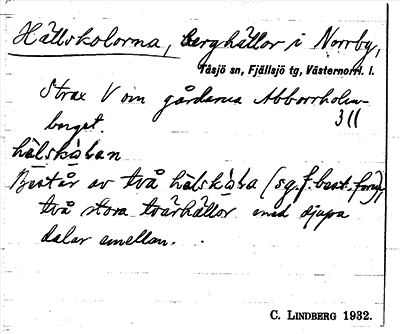 Hällskolorna, berghällor i Norrby,
Tåsjö sn, Fjällsjö tg, Västernorrl. l.
Strax V om gårdarna Abborrholm-
berget. 311
hälskọ̀lan
Består av två hälskọ̀la (sg. f. best. form),
två stora tvärhällor med djupa
dalar emellan.
C. LINDBERG 1932.